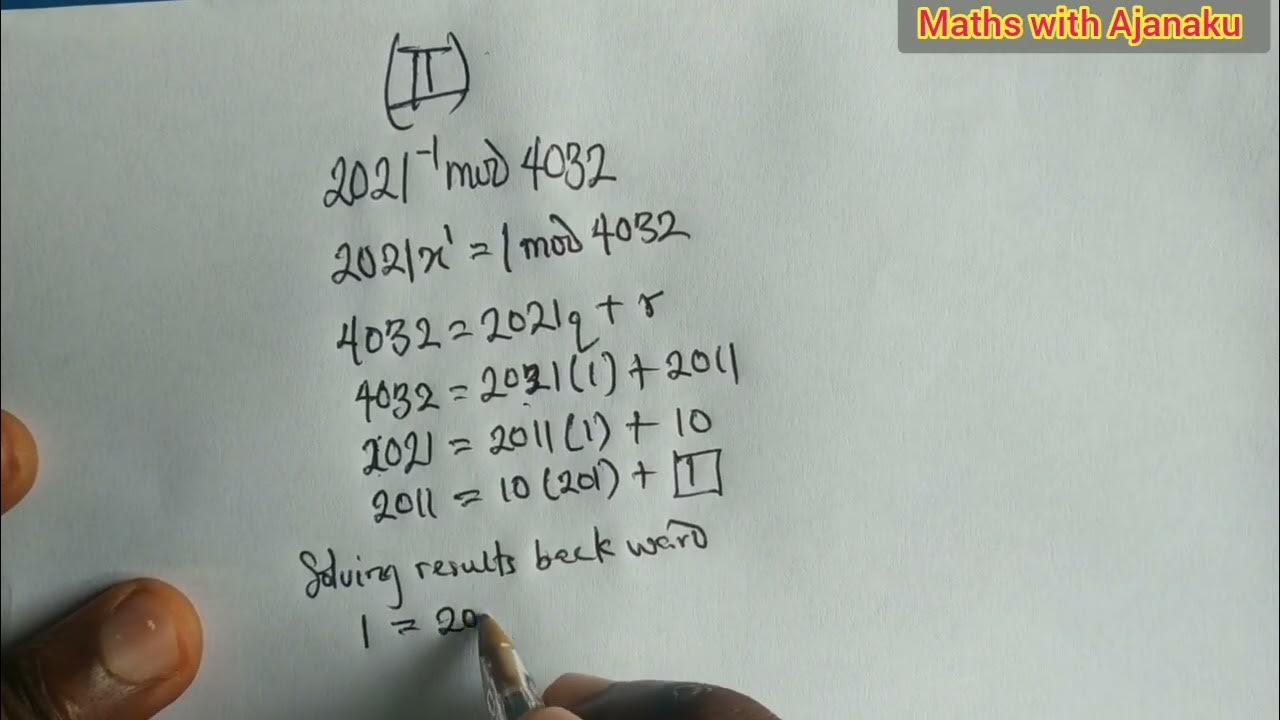 Maths with Ajanaku
(II)
2021⁻¹ mod 4032
2021x¹ = 1 mod 4032
4032 = 2021q + r
4032 = 2021(1) + 2011
2021 = 2011(1) + 10
2011 = 10(201) + 1
Solving results back ward
1 = 20